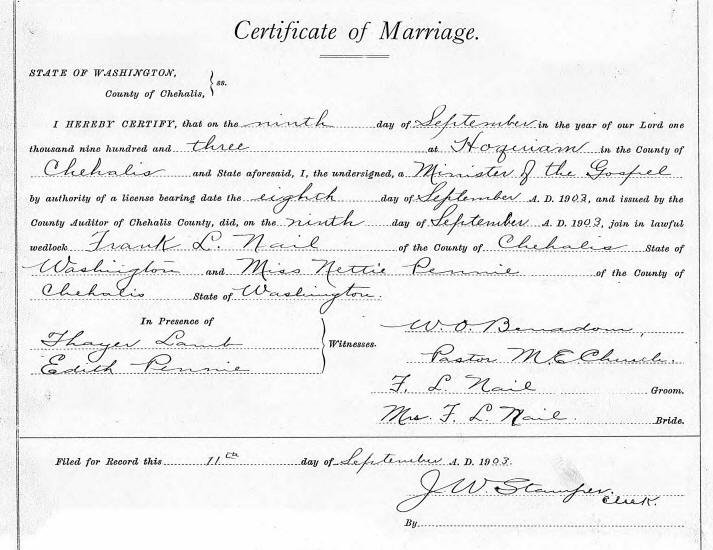 Certificate of Marriage.
STATE OF WASHINGTON,
County of Chehalis, } ss.
I HEREBY CERTIFY, that on the ninth day of September in the year of our Lord one
thousand nine hundred and three at Hoquiam in the County of
Chehalis and State aforesaid, I, the undersigned, a Minister of the Gospel
by authority of a license bearing date the eighth day of September A. D. 1903, and issued by the
County Auditor of Chehalis County, did, on the ninth day of September A. D. 1903, join in lawful
wedlock Frank L. Nail of the County of Chehalis State of
Washington and Miss Nettie Pennie of the County of
Chehalis State of Washington.
In Presence of
Thayer Lamb
Edith Pennie
Witnesses.
W. O. Benadom,
Pastor M. E. Church.
F. L. Nail Groom.
Mrs. F. L. Nail. Bride.
Filed for Record this 11th day of September A. D. 1903.
J. W. Stamper.
Clerk.
By